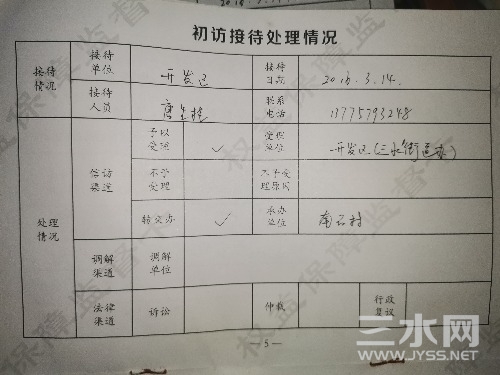 初访接待处理情况
接待情况 接待单位 开发区 接待日期 2016.3.14.
接待人员 联系电话 13775793248
处理情况 信访渠道 予以受理 ✓ 受理单位 开发区(三水街道办)
不予受理 不予受理原因
转交办 ✓ 承办单位 南石村
调解渠道 调解单位
法律渠道 诉讼 仲裁 行政复议
— 5 —
权益保障监督
三水网
WWW.JYSS.NET